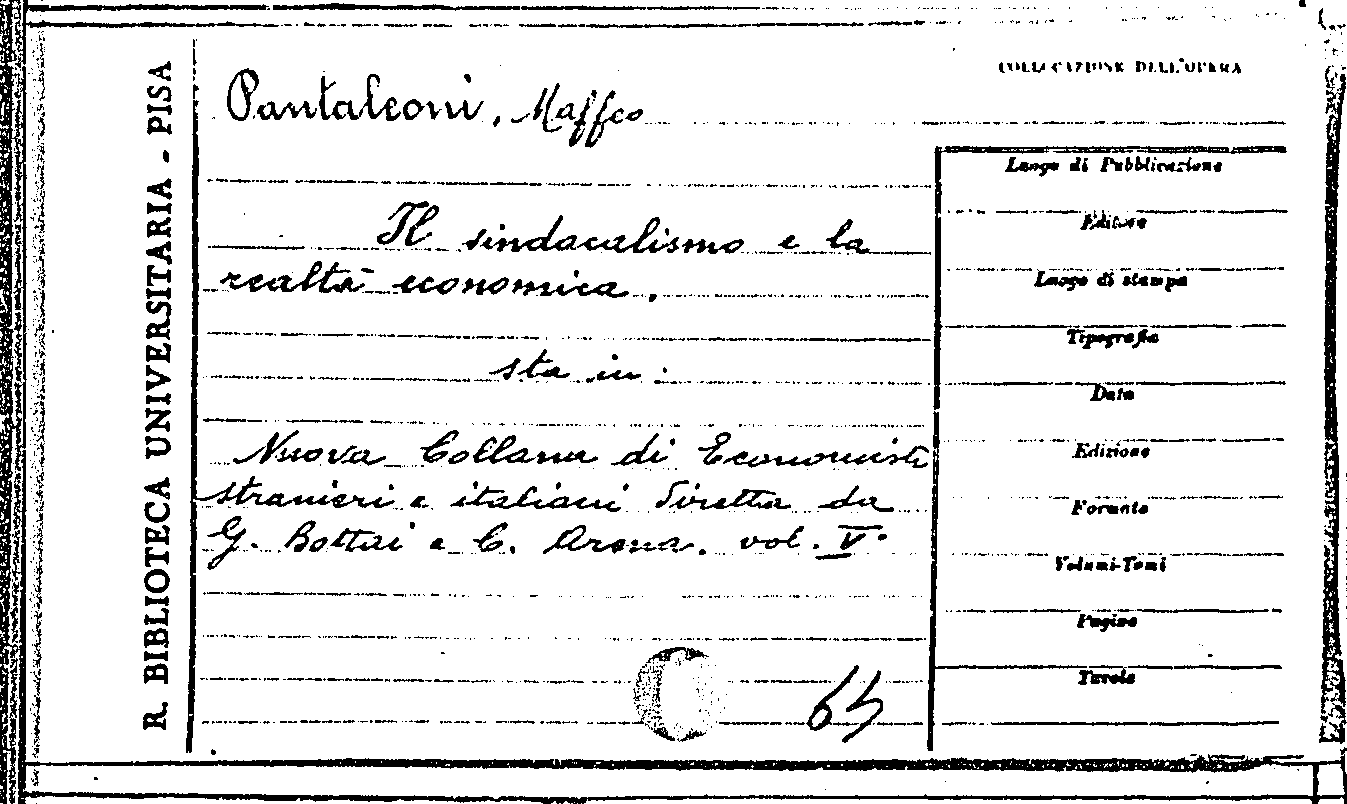 R. BIBLIOTECA UNIVERSITARIA - PISA
COLLOCAZIONE DELL'OPERA
Pantaleoni, Maffeo
Il sindacalismo e la
realtà economica.
sta in:
Nuova Collana di Economisti
stranieri e italiani diretta da
G. Bottai e C. Arena. vol. V.
Luogo di Pubblicazione
Editore
Luogo di stampa
Tipografia
Data
Edizione
Formato
Volumi-Tomi
Pagine
Tavole